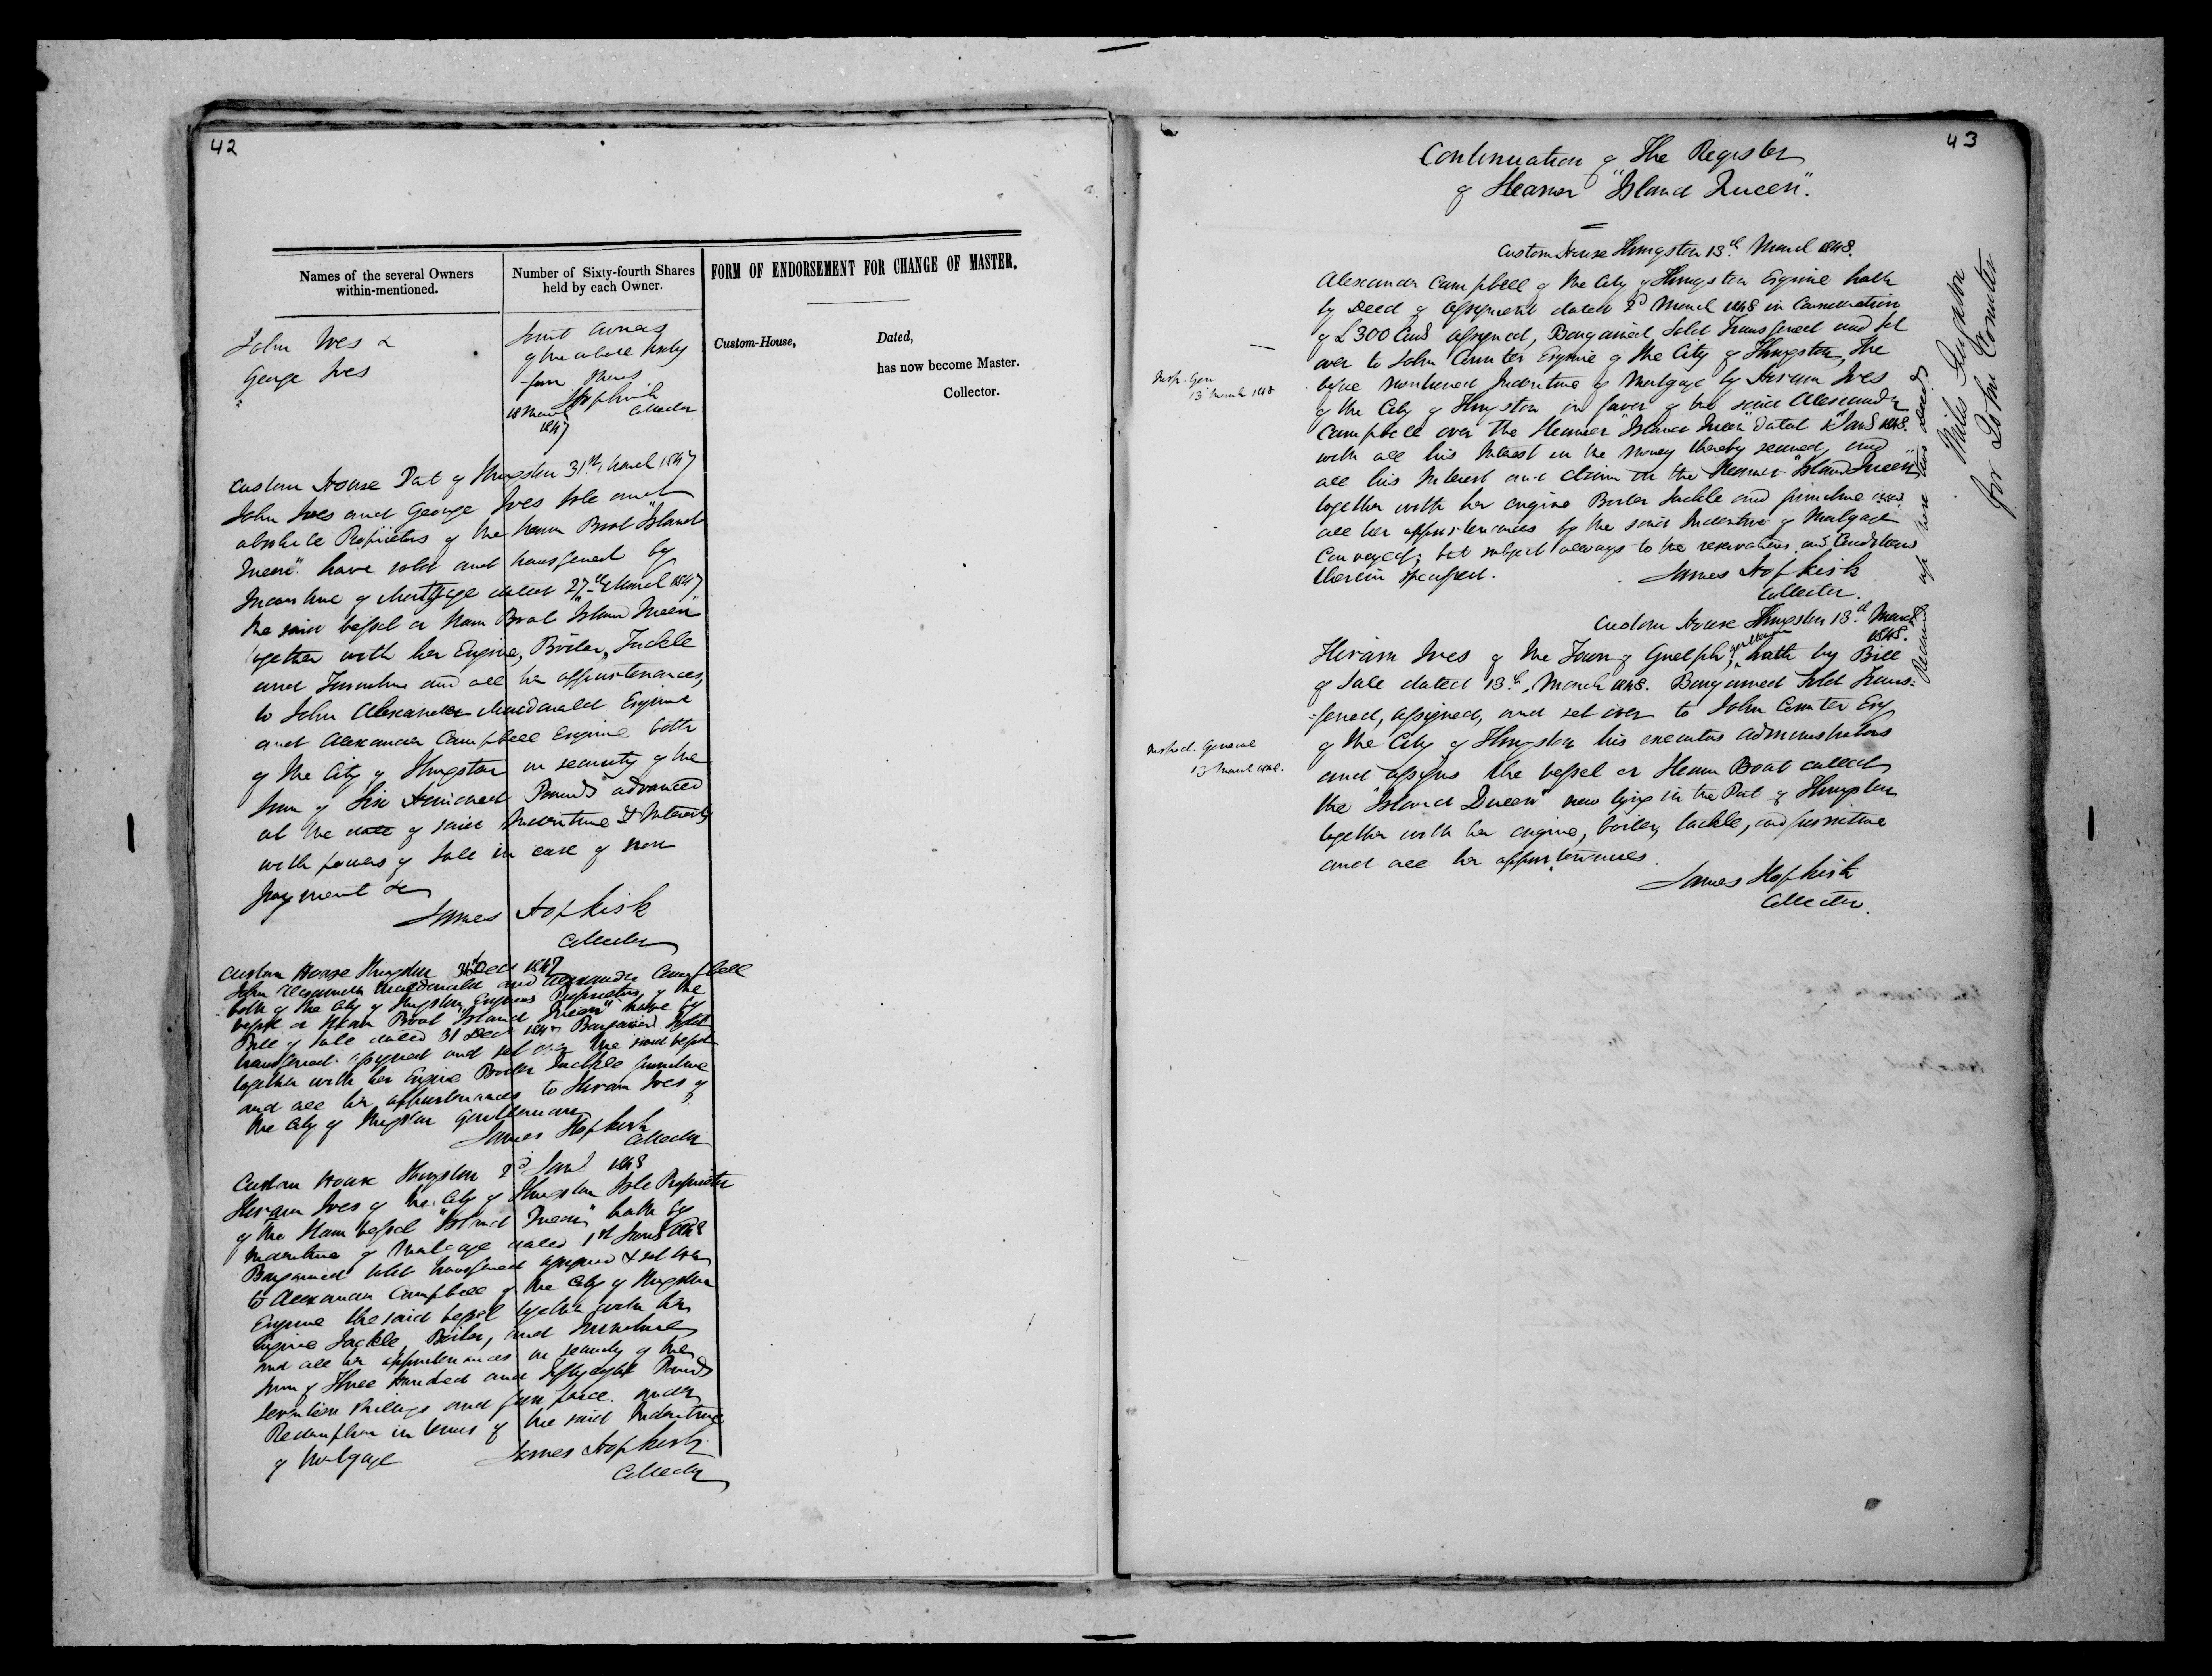 42
Names of the several Owners
within-mentioned.
Number of Sixty-fourth Shares
held by each Owner.
FORM OF ENDORSEMENT FOR CHANGE OF MASTER.
Custom-House,
Dated,
has now become Master.
Collector.
John Ives &
George Ives
Joint owners
of the above Sixty
four Shares
JHopkirk
Collector
18 March
1847
Custom House Port of Kingston 31st March 1847
John Ives and George Ives Sole and
absolute Proprietors of the Steam Boat "Island
Queen" have sold and transferred by
Indenture of Mortgage dated 27th March 1847
the said vessel or Steam Boat "Island Queen"
together with her Engine, Boiler, Tackle
and Furniture and all her appurtenances,
to John Alexander Macdonald Esquire
and Alexander Campbell Esquire both
of the City of Kingston in security of the
Sum of Six Hundred Pounds advanced
at the date of said Indenture & Interest
with powers of Sale in case of non
payment &c
James Hopkirk
Collector
Custom House Kingston 31st Decr 1847
John Alexander Macdonald and Alexander Campbell
both of the City of Kingston Esquires Proprietors of the
vessel or Steam Boat "Island Queen" have by
Bill of Sale dated 31 Decr 1847 Bargained Sold
transferred assigned and set over the said vessel
together with her Engine Boiler Tackle furniture
and all her appurtenances to Hiram Ives of
the City of Kingston Gentleman
James Hopkirk
Collector
Custom House Kingston 2d Jany 1848
Hiram Ives of the City of Kingston Sole Proprietor
of the Steam vessel "Island Queen" hath by
Indenture of Mortgage dated 1st Jany 1848
Bargained Sold transferred assigned & set over
to Alexander Campbell of the City of Kingston
Esquire the said vessel together with her
Engine Tackle, Boiler, and Furniture
and all her appurtenances in security of the
Sum of Three hundred and fifty eight Pounds
Seventeen Shillings and four pence under
Redemption in terms of the said Indenture
of Mortgage
James Hopkirk
Collector
43
Continuation of The Register
of Steamer "Island Queen".
Custom House Kingston 13th March 1848.
Alexander Campbell of the City of Kingston Esquire hath
by Deed of Assignment dated 2d March 1848 in Consideration
of £300 assigned, Bargained Sold Transferred and set
over to John Counter Esquire of the City of Kingston, the
before mentioned Indenture of Mortgage by Hiram Ives
of the City of Kingston in favor of the said Alexander
Campbell over the Steamer "Island Queen" dated 1st Jany 1848.
with all his Interest in the money thereby secured, and
all his Interest and claim in the Steamer "Island Queen",
together with her engine Boiler Tackle and furniture and
all her appurtenances by the said Indenture of Mortgage
Conveyed; but subject always to the reservations and Conditions
therein specified.
James Hopkirk
Collector.
Insp. Gen
13 March 1848
Custom House Kingston 13th March
1848.
Hiram Ives of the Town of Guelph, gentleman hath by Bill
of Sale dated 13th March 1848. Bargained Sold Trans:
=ferred, assigned, and set over to John Counter Esq
of the City of Kingston his executors administrators
and assigns the vessel or Steam Boat called
the "Island Queen" now lying in the Port of Kingston
together with her engine, boiler, tackle, and furniture
and all her appurtenances.
James Hopkirk
Collector.
Inspect. General
13 March 1848.
Received up here two deeds
for John Counter